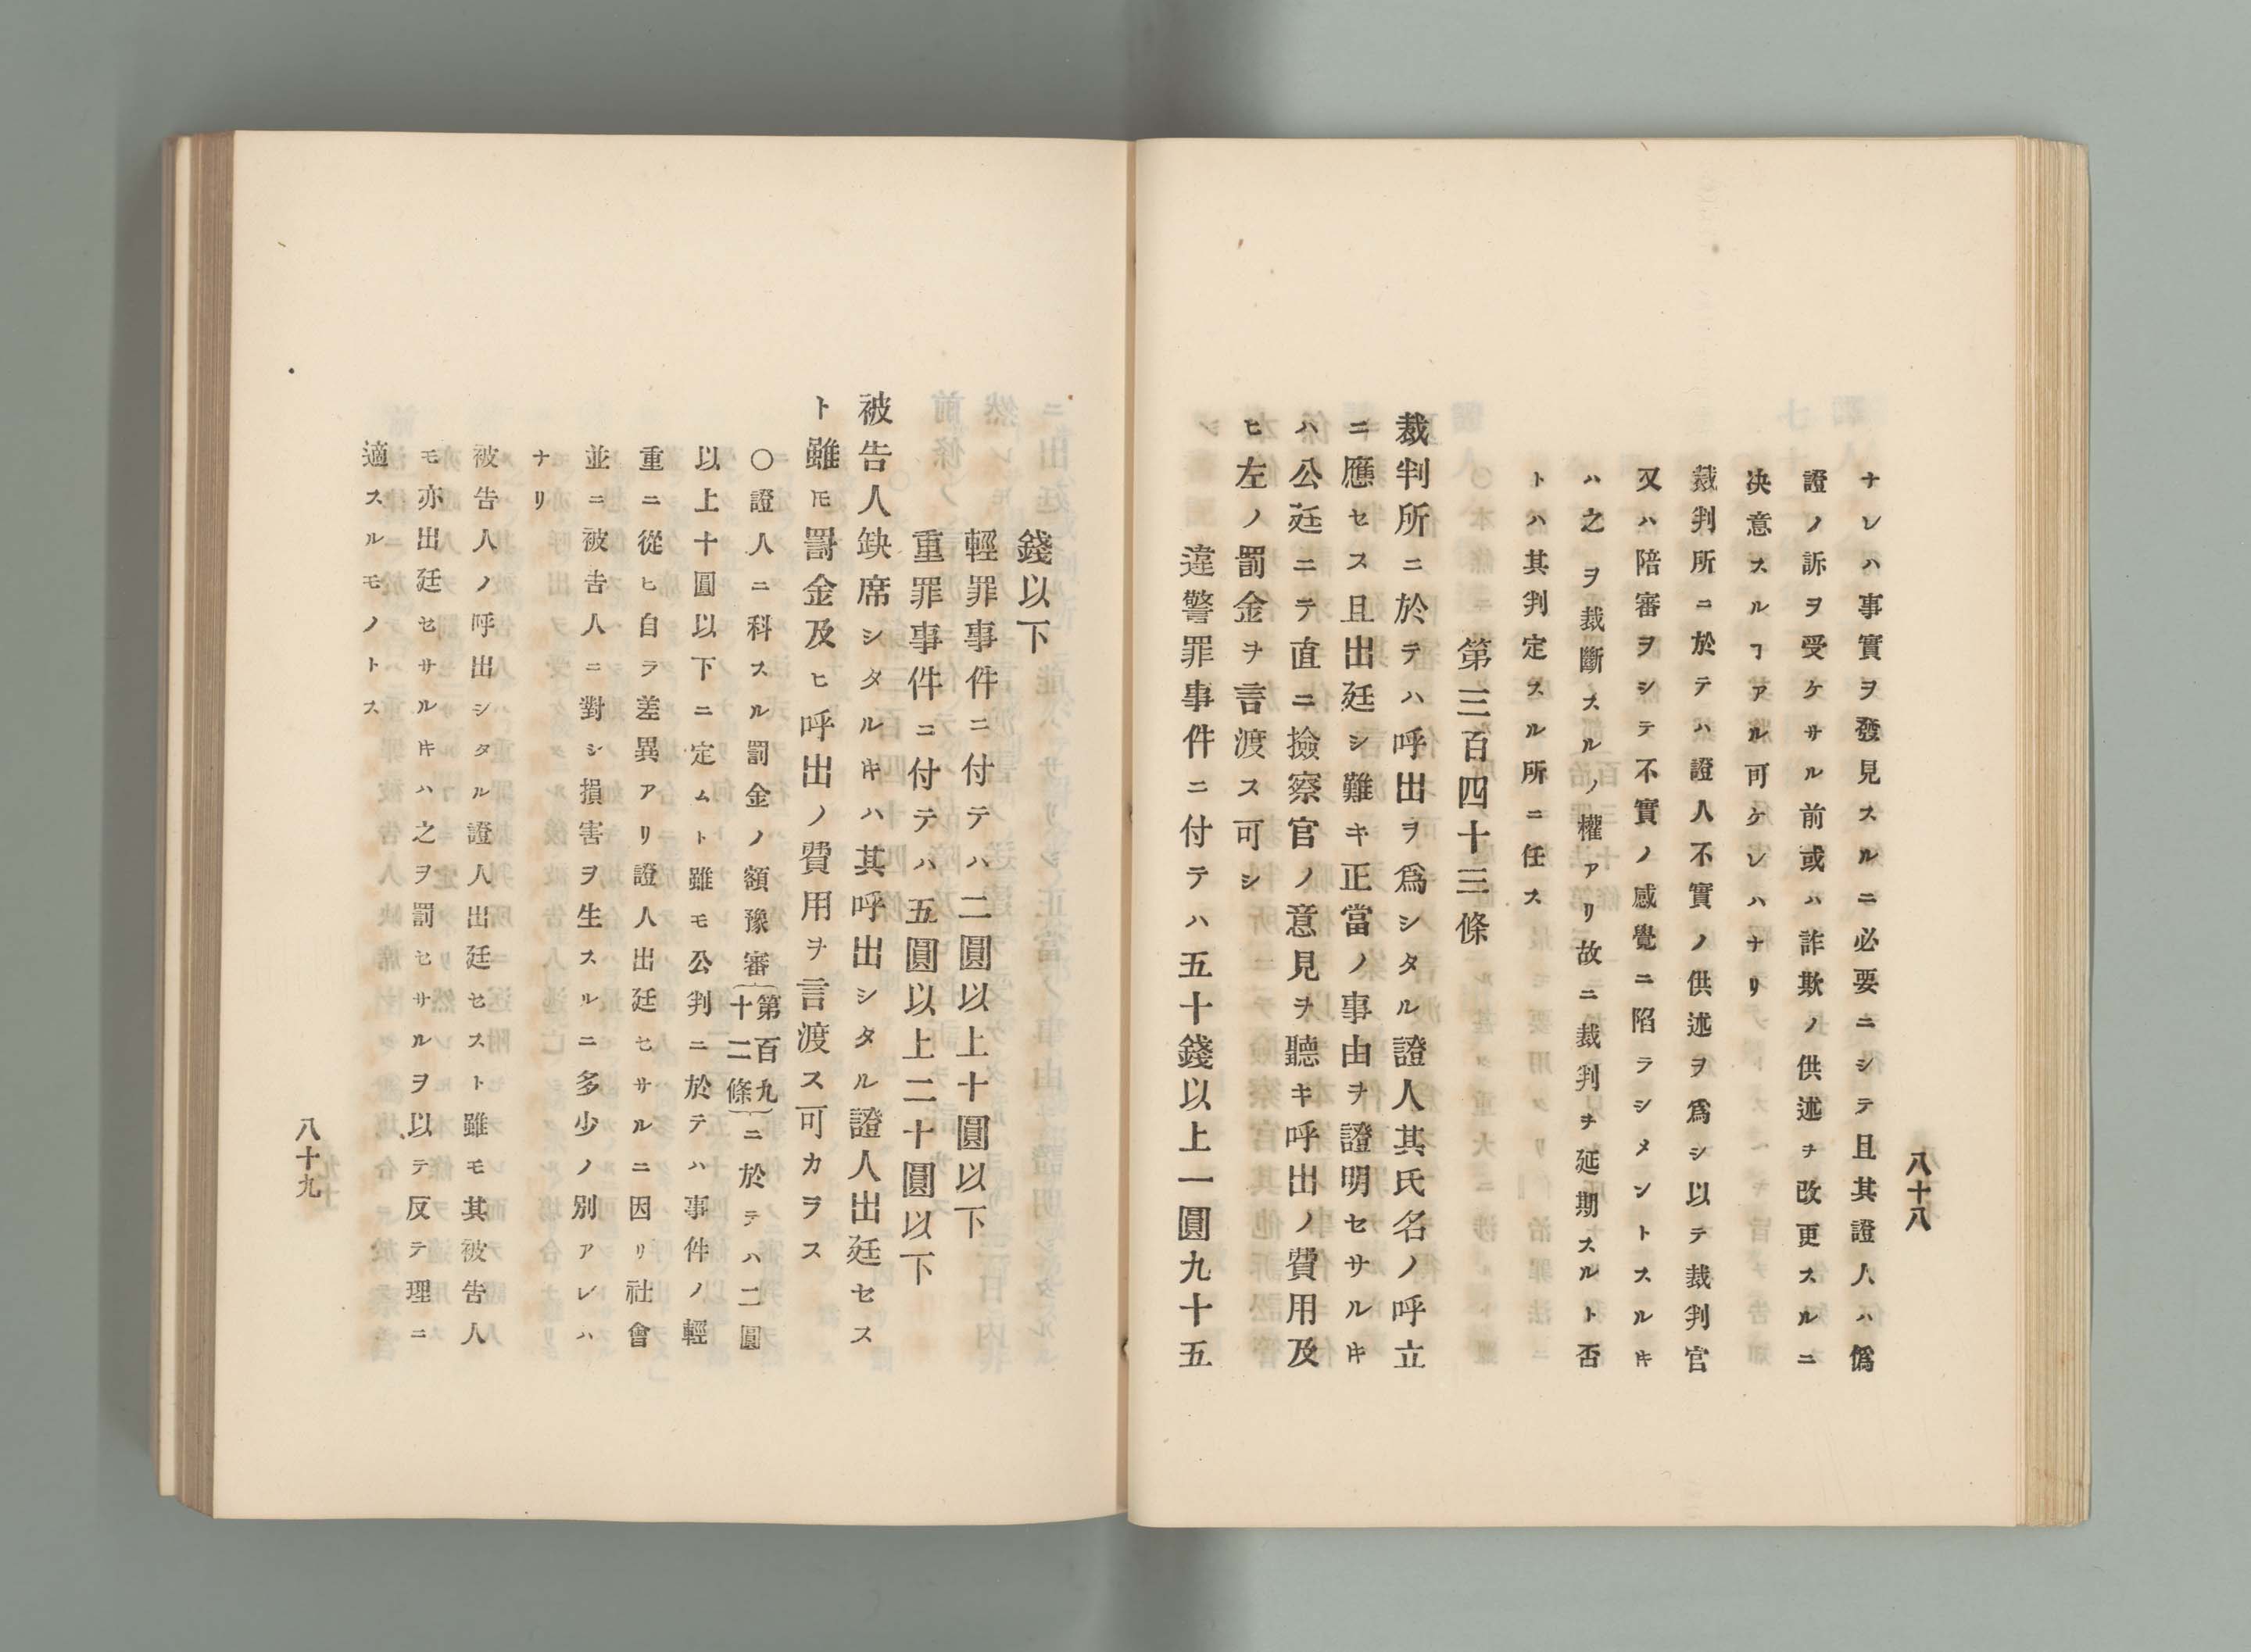 八十八
ナレハ事實ヲ發見スルニ必要ニシテ且其證人ハ僞
證ノ訴ヲ受ケサル前或ハ詐欺ノ供述ヲ改更スルニ
决意スルヿアル可ケレハナリ
裁判所ニ於テハ證人不實ノ供述ヲ爲シ以テ裁判官
又ハ陪審ヲシテ不實ノ感覺ニ陷ラシメントスルキ
ハ之ヲ裁斷スルノ權アリ故ニ裁判ヲ延期スルト否
トハ其判定スル所ニ任ス
第三百四十三條
裁判所ニ於テハ呼出ヲ爲シタル證人其氏名ノ呼立
ニ應セス且出廷シ難キ正當ノ事由ヲ證明セサルキ
ハ公廷ニテ直ニ撿察官ノ意見ヲ聽キ呼出ノ費用及
ヒ左ノ罰金ヲ言渡ス可シ
違警罪事件ニ付テハ五十錢以上一圓九十五
錢以下
輕罪事件ニ付テハ二圓以上十圓以下
重罪事件ニ付テハ五圓以上二十圓以下
被告人缺席シタルキハ其呼出シタル證人出廷セス
ト雖𪜈罰金及ヒ呼出ノ費用ヲ言渡ス可カラス
○證人ニ科スル罰金ノ額豫審{第百九十二條}ニ於テハ二圓
以上十圓以下ニ定ムト雖モ公判ニ於テハ事件ノ輕
重ニ從ヒ自ラ差異アリ證人出廷セサルニ因リ社會
並ニ被告人ニ對シ損害ヲ生スルニ多少ノ別アレハ
ナリ
被告人ノ呼出シタル證人出廷セスト雖モ其被告人
モ亦出廷セサルキハ之ヲ罰セサルヲ以テ反テ理ニ
適スルモノトス
八十九